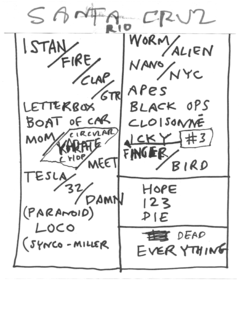 SANTA CRUZ
RIO
ISTAN/
FIRE/
CLAP/
GTR
LETTERBOX
BOAT OF CAR
MOM/ CIRCULAR
KARATE
CHOP
/MEET
TESLA/
32/
DAMN
(PARANOID)
LOCO
(SYNCO-MILLER
WORM/
ALIEN
NANO/
NYC
APES
BLACK OPS
CLOISONNÉ
ICKY #3
FINGER/
BIRD
HOPE
123
DIE
DEAD
EVERYTHING